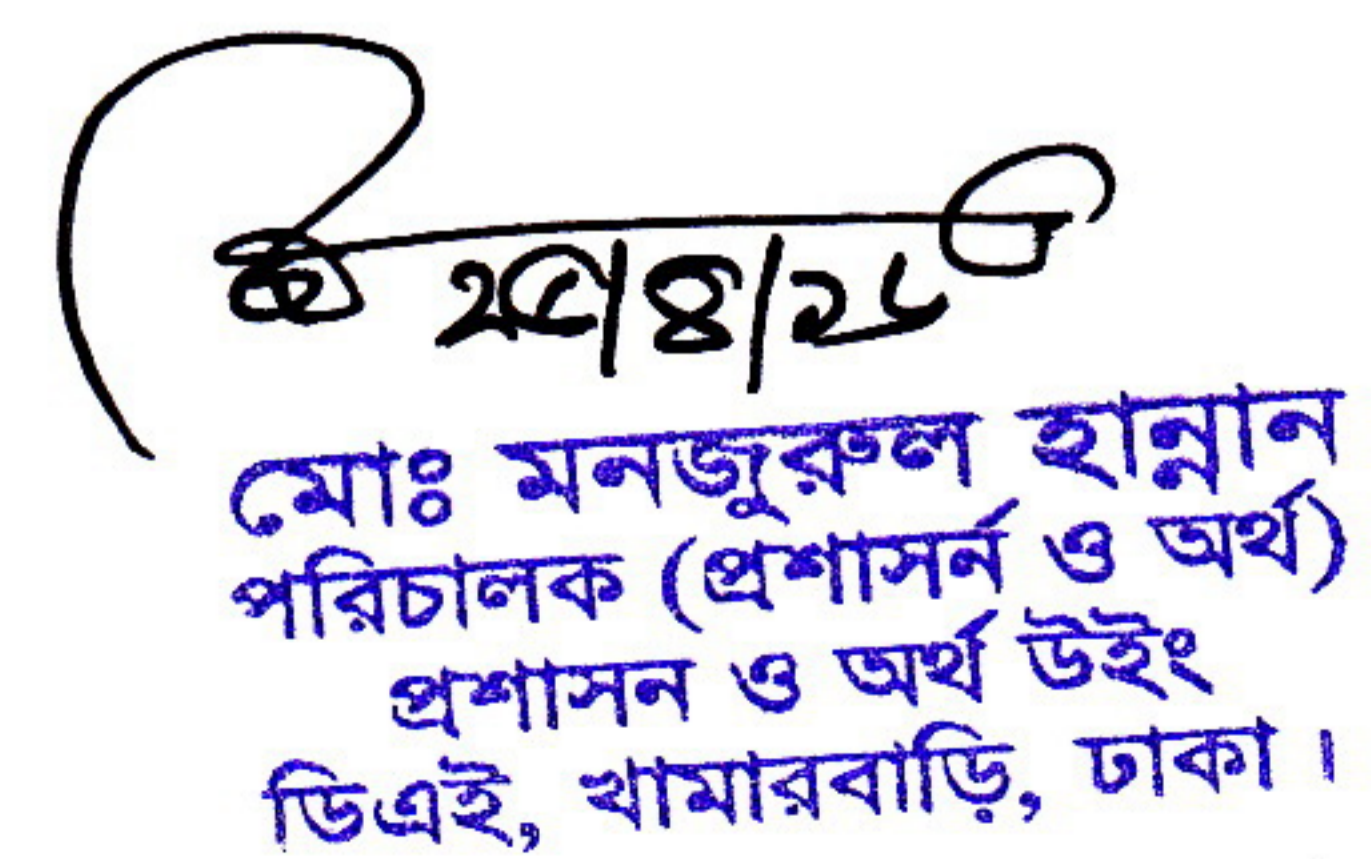 মোঃ মনজুরুল হান্নান
পরিচালক (প্রশাসর্ন ও অর্থ)
প্রশাসন ও অর্থ উইং
ডিএই, খামারবাড়ি, ঢাকা।